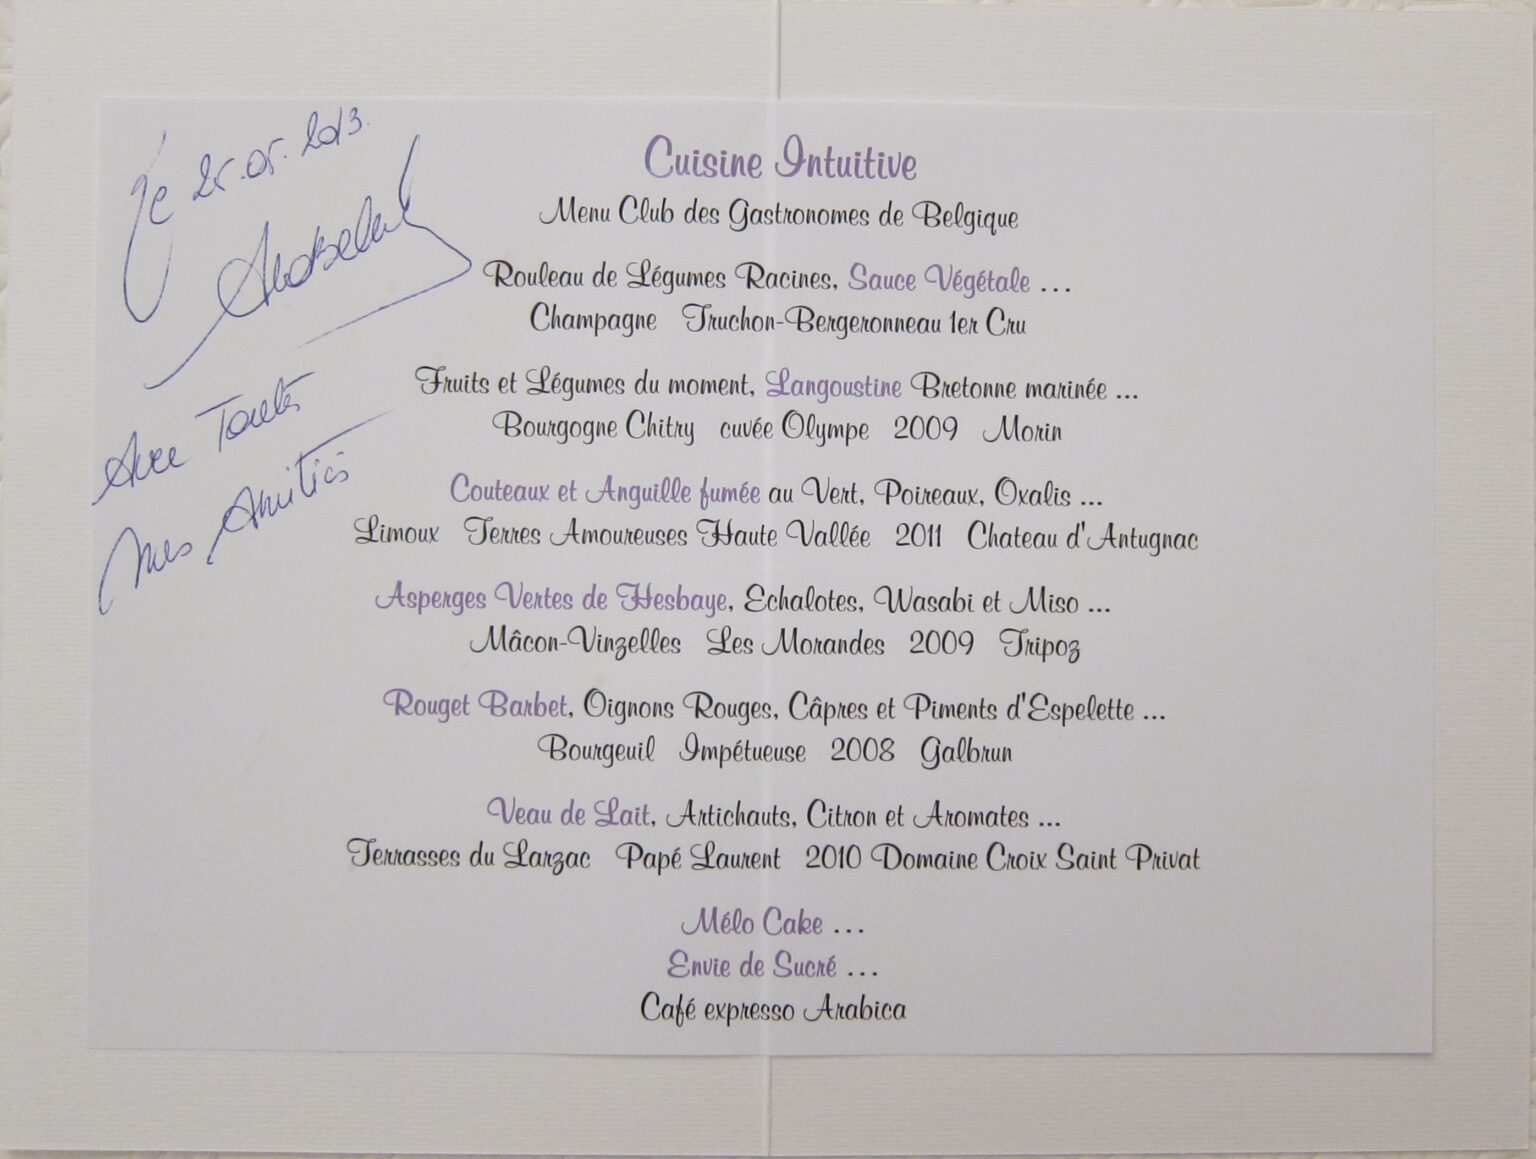 Le 25.05.2013.
Avec Toutes
Mes Amitiés
Cuisine Intuitive
Menu Club des Gastronomes de Belgique
Rouleau de Légumes Racines, Sauce Végétale ...
Champagne Truchon-Bergeronneau 1er Cru
Fruits et Légumes du moment, Langoustine Bretonne marinée ...
Bourgogne Chitry cuvée Olympe 2009 Morin
Couteaux et Anguille fumée au Vert, Poireaux, Oxalis ...
Limoux Terres Amoureuses Haute Vallée 2011 Chateau d'Antugnac
Asperges Vertes de Hesbaye, Echalotes, Wasabi et Miso ...
Mâcon-Vinzelles Les Morandes 2009 Tripoz
Rouget Barbet, Oignons Rouges, Câpres et Piments d'Espelette ...
Bourgeuil Impétueuse 2008 Galbrun
Veau de Lait, Artichauts, Citron et Aromates ...
Terrasses du Larzac Papé Laurent 2010 Domaine Croix Saint Privat
Mélo Cake ...
Envie de Sucré ...
Café expresso Arabica